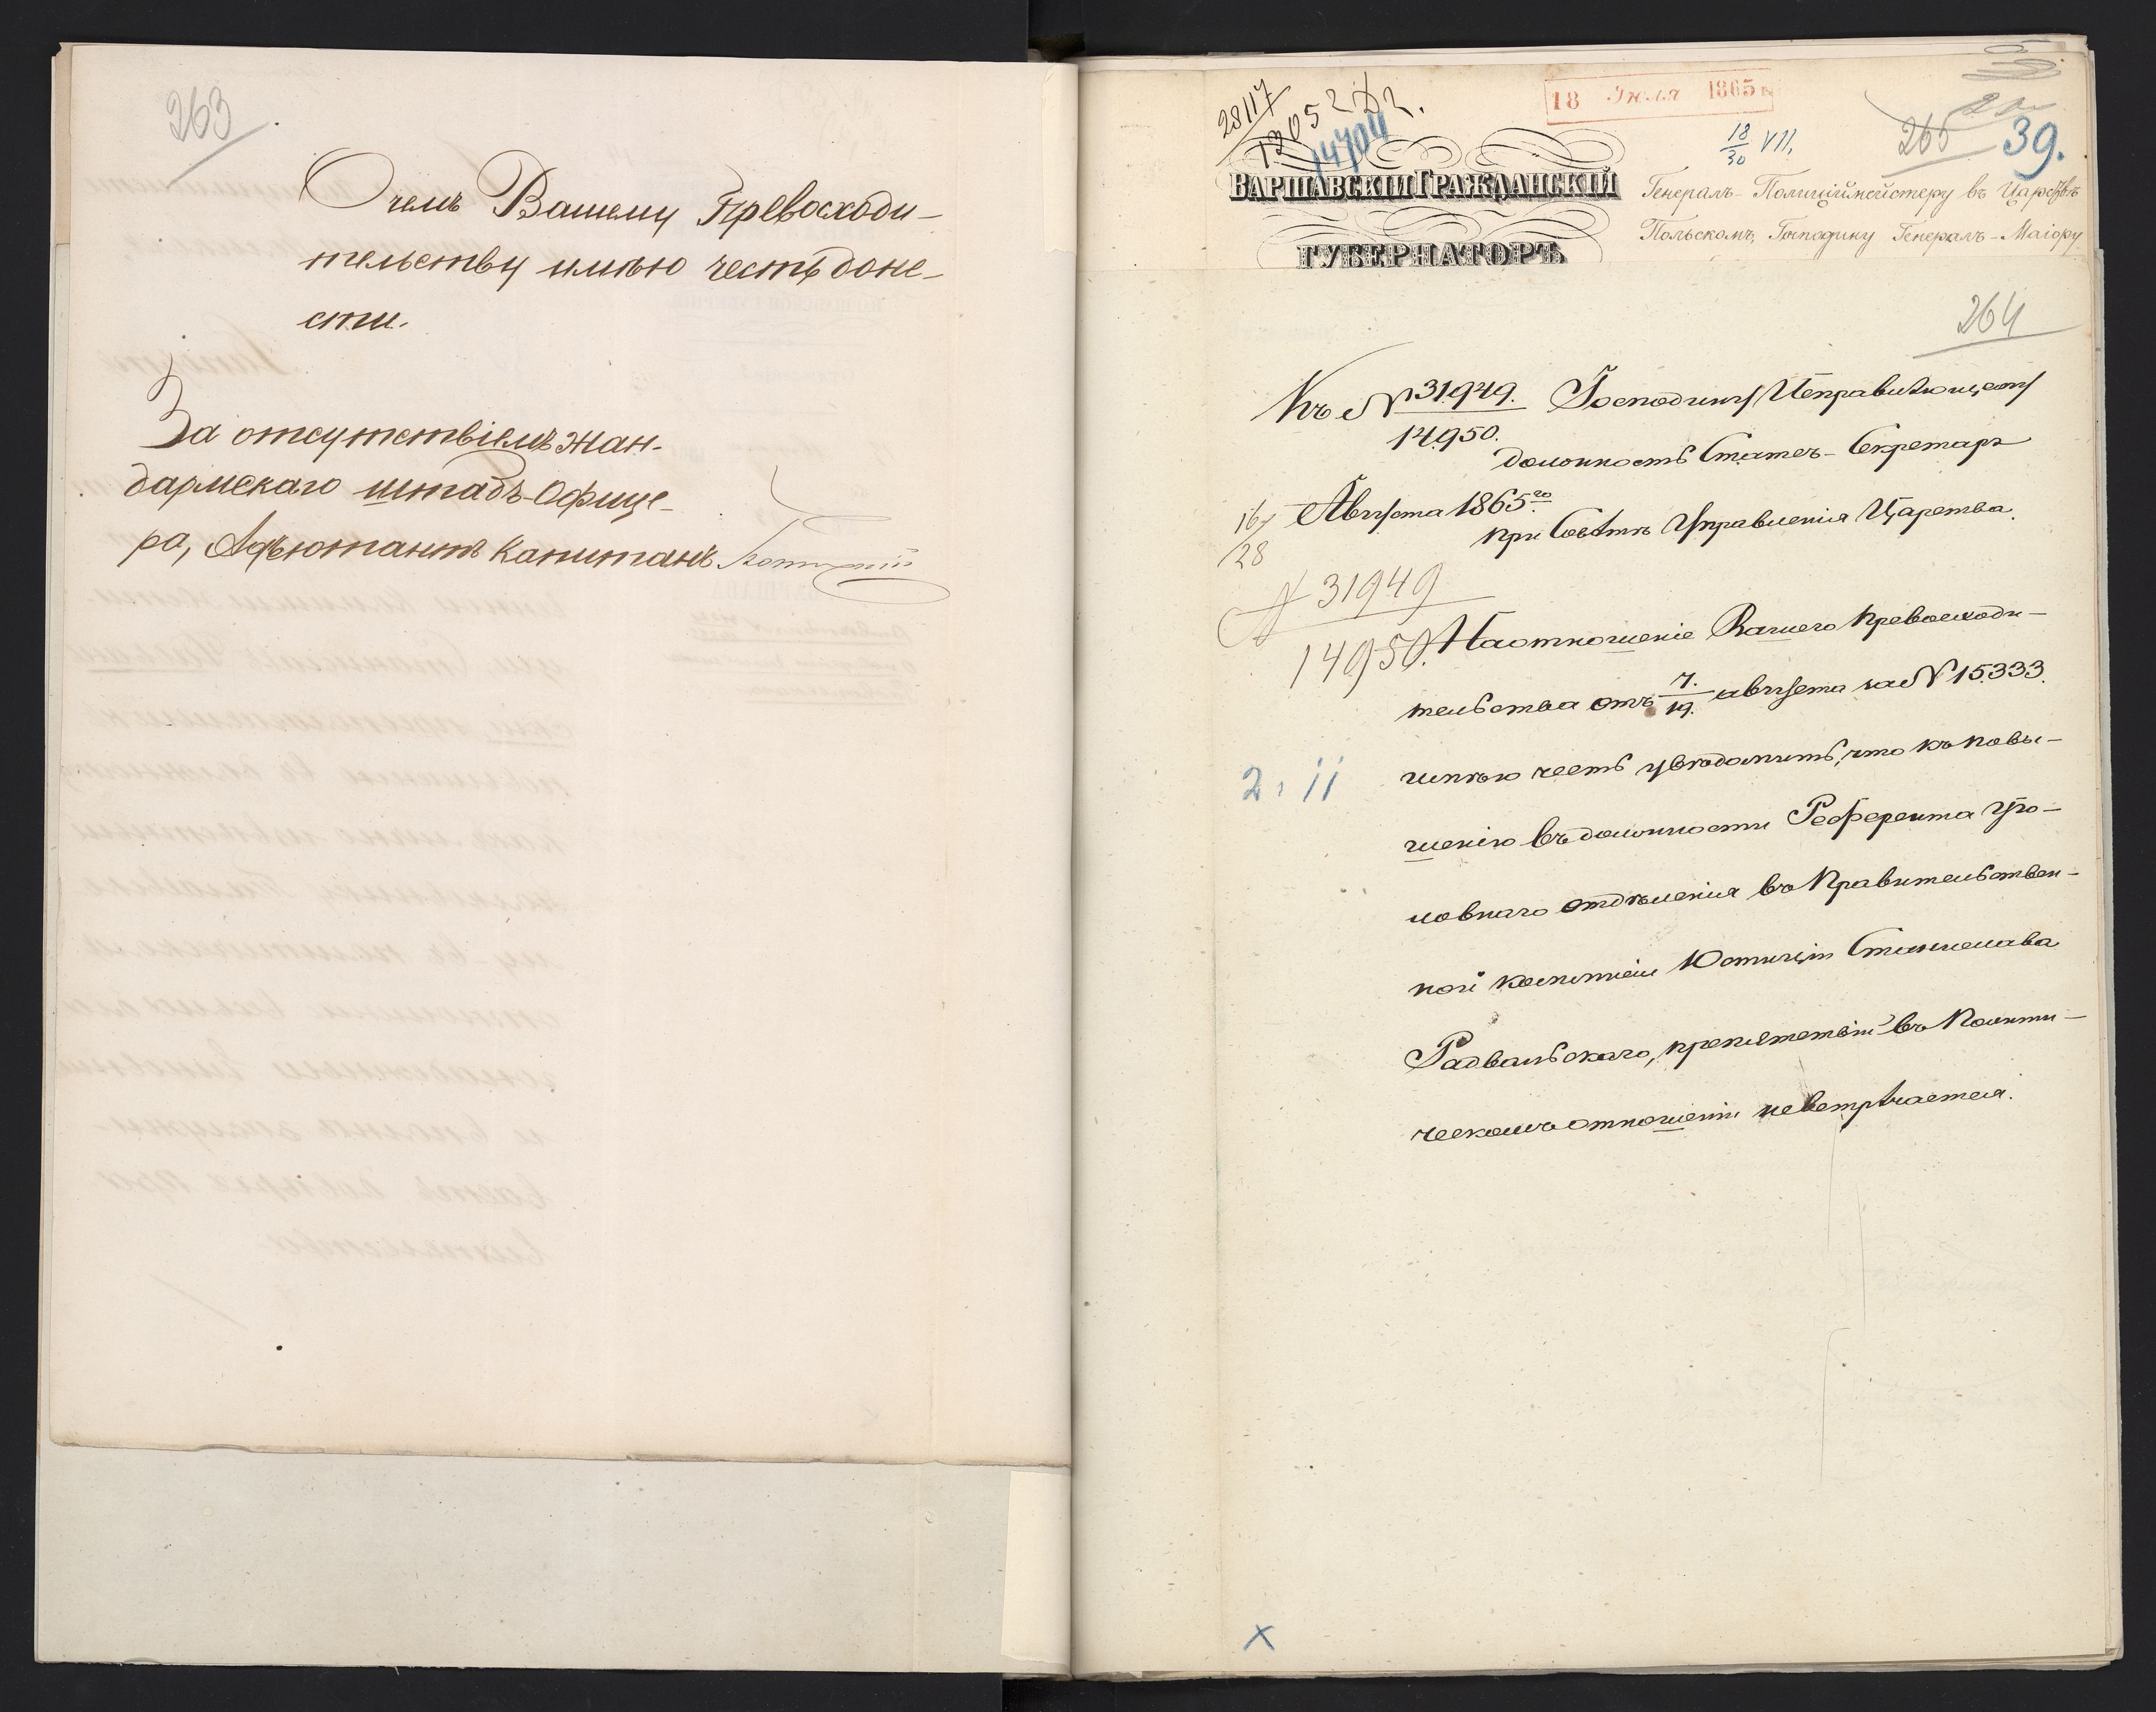 263
О чемъ Вашему Превосходи-
тельству имѣю честь доне-
сти.
За отсутствіемъ Жан-
дармскаго штабъ-Офице-
ра, Адъютантъ Капитанъ
28117
12052
14704
18 Июля 1865 г.
18/30 VII.
265
39.
ВАРШАВСКІЙ ГРАЖДАНСКІЙ
ГУБЕРНАТОРЪ
Генералъ-Полиціймейстеру въ Царствѣ
Польскомъ, Господину Генералъ-Маіору
264
Къ № 31949. Господину Исправляющему
14950.
должность Статсъ-Секретаря
16/28 Августа 1865 го
при Совѣтѣ Управленія Царства.
№ 31949
14950. На отношеніе Вашего Превосходи-
тельства отъ 7./19. августа за № 15333.
имѣю честь увѣдомить, что къ повы-
шенію въ должности Референта Уго-
ловнаго отдѣленія въ Правительствен-
2. ii
ной коммисіи Юстиціи Станислава
Радвальскаго, препятствій въ Полити-
ческомъ отношеніи невстрѣчается.
x